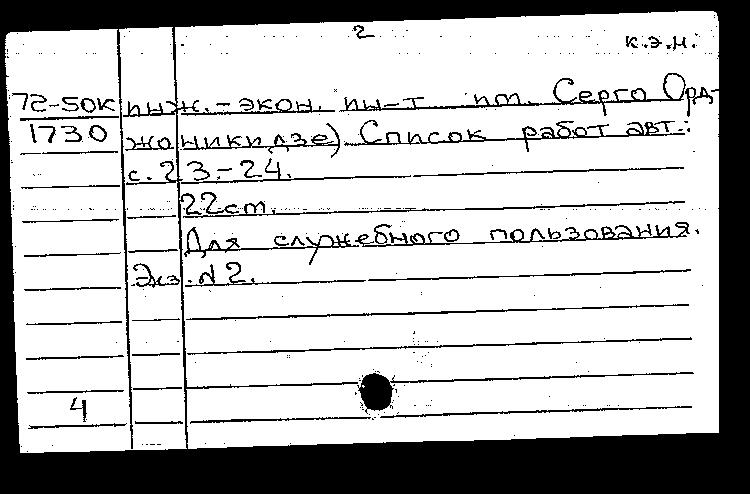 2
к.э.н.
72-50К инж.-экон. ин-т им. Серго Орд-
1730 жоникидзе). Список работ авт.:
с.23-24.
22см.
Для служебного пользования.
Экз. №2.
4